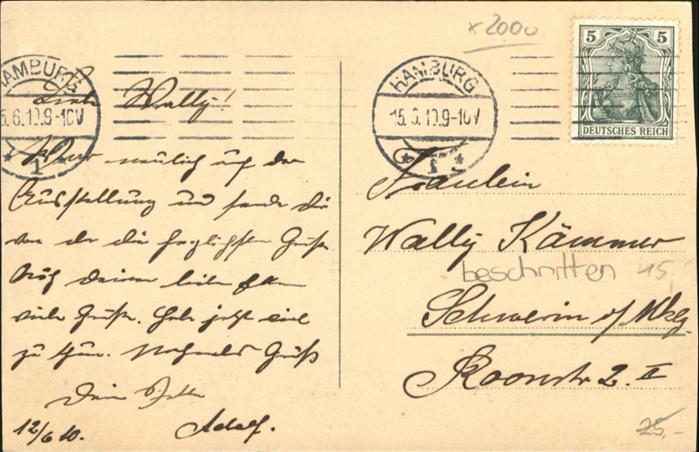 x 2000
HAMBURG
15.6.10.9-10V
* 1 *
HAMBURG
15.6.10.9-10V
* 1 *
5 5
DEUTSCHES REICH
Liebe Wally!
War neulich auf der
Ausstellung und sende Dir
von da die herzlichsten Grüße
Auch Deinen lieben
viele Grüße. Habe jetzt viel
zu tun. Nochmals Gruß
Dein Vetter
Adolf.
12/6 10.
Fräulein
Wally Kämmer
beschnitten 15,
Schwerin i/Mklg
Roonstr 2. II
25,-